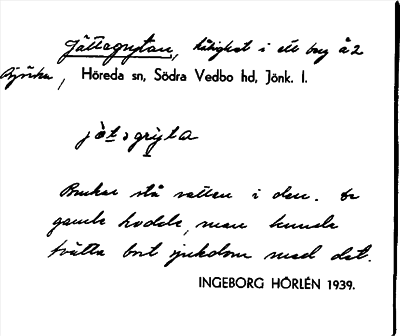 Jättegrytan, häligket i ett berg å 2
Björka, Höreda sn, Södra Vedbo hd, Jönk. l.
jòtsgrỳta
Brukar stå vatten i den. De
gamle trodde, man kunde
tvätta bort sjukdom med det.
INGEBORG HÖRLÉN 1939.